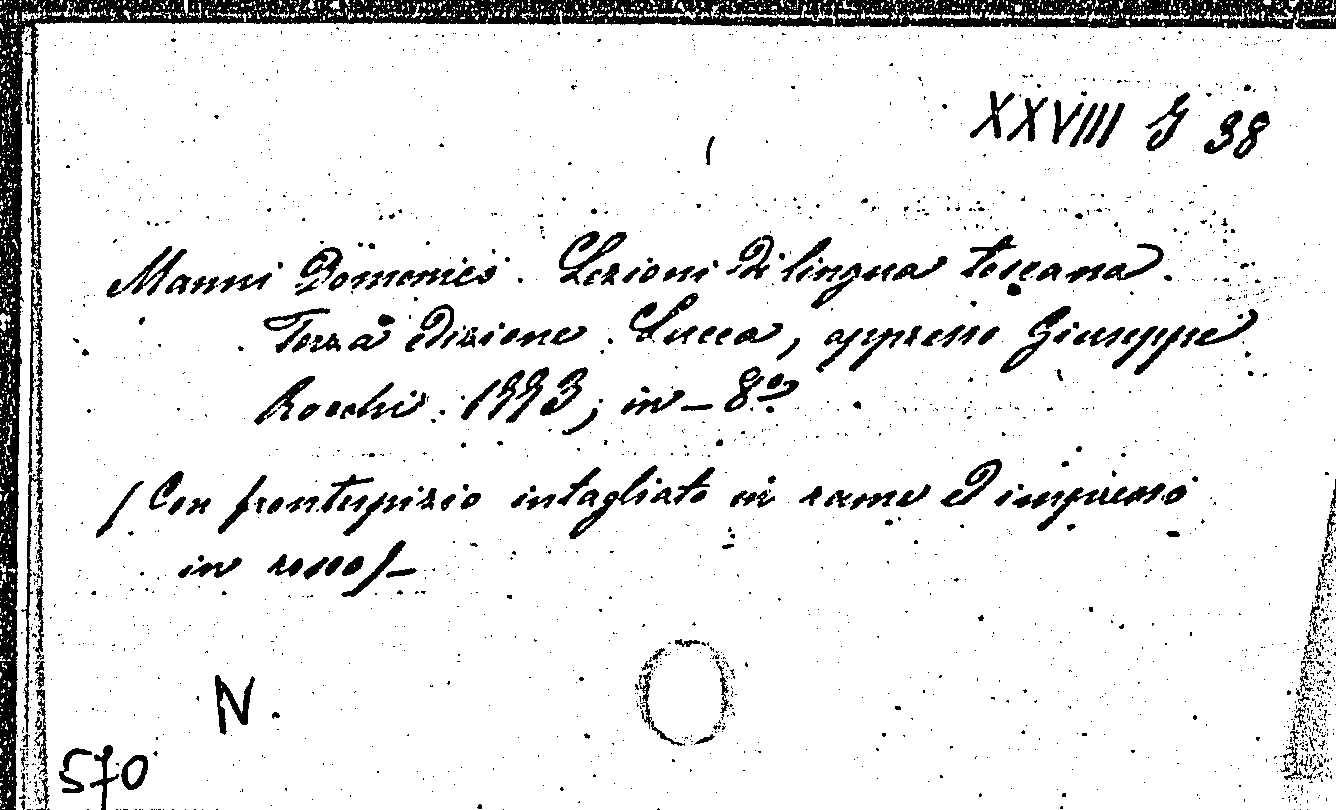 XXVIII G 38
Manni Domenico. Lezioni di lingua toscana.
Terza edizione. Lucca, appresso Giuseppe
Rocchi. 1773; in-8º.
/ Con frontespizio intagliato in rame ed impresso
in rosso /-
N.
570